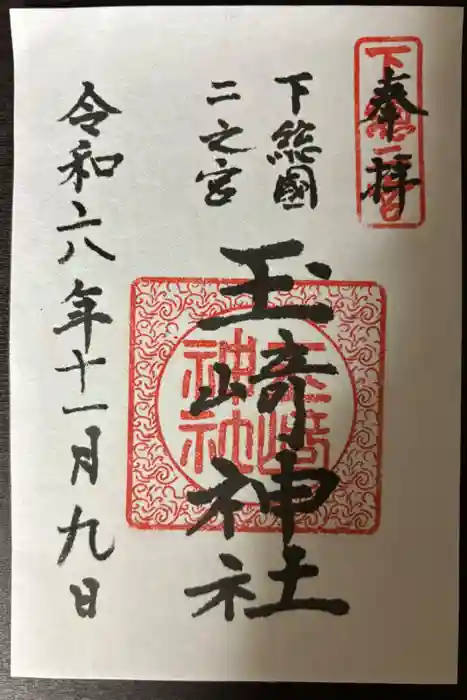 奉拝
下総二宮
下総國
二之宮
玉﨑神社
玉﨑神社
令和六年十一月九日